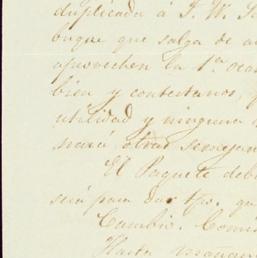 duplicada á J. W. S
buque que salga de a
aprovechen la 1ª oca
bien y contestarnos,
utilidad y ninguna
otras semejan
El Paquete deb
será para dar qu
Cambio. Comi
Hasta mañan